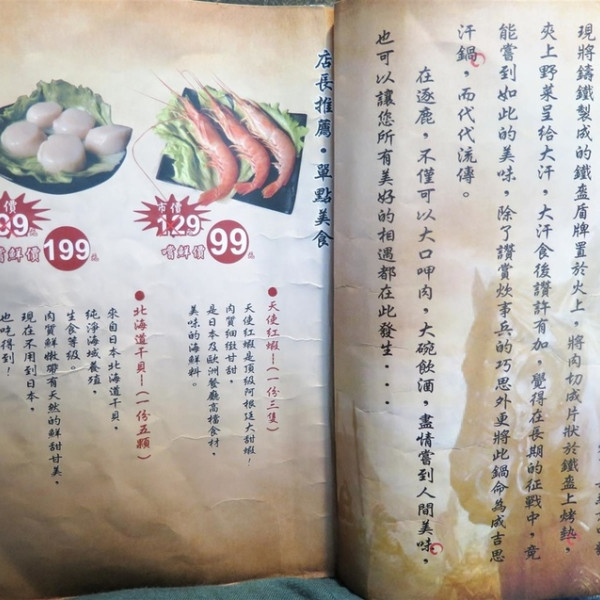 現將鑄鐵製成的鐵盔盾牌置於火上，將肉切成片狀於鐵盔上烤熱，
夾上野菜呈給大汗，大汗食後讚許有加，覺得在長期的征戰中，竟
能嘗到如此的美味，除了讚賞炊事兵的巧思外更將此鍋命為成吉思
汗鍋，而代代流傳。
在逐鹿，不僅可以大口呷肉，大碗飲酒，盡情嘗到人間美味，
也可以讓您所有美好的相遇都在此發生...
店長推薦。單點美食
市價
129元
嚐鮮價 99元
天使紅蝦—(一份三隻)
天使紅蝦是頂級阿根廷大甜蝦！
肉質細緻甘甜，
是日本及歐洲餐廳高檔食材，
美味的海鮮料。
嚐鮮價 199元
北海道干貝—(一份五顆)
來自日本北海道干貝，
純淨海域養殖，
生食等級。
肉質鮮嫩帶有天然的鮮甜甘美，
現在不用到日本，
也吃得到！